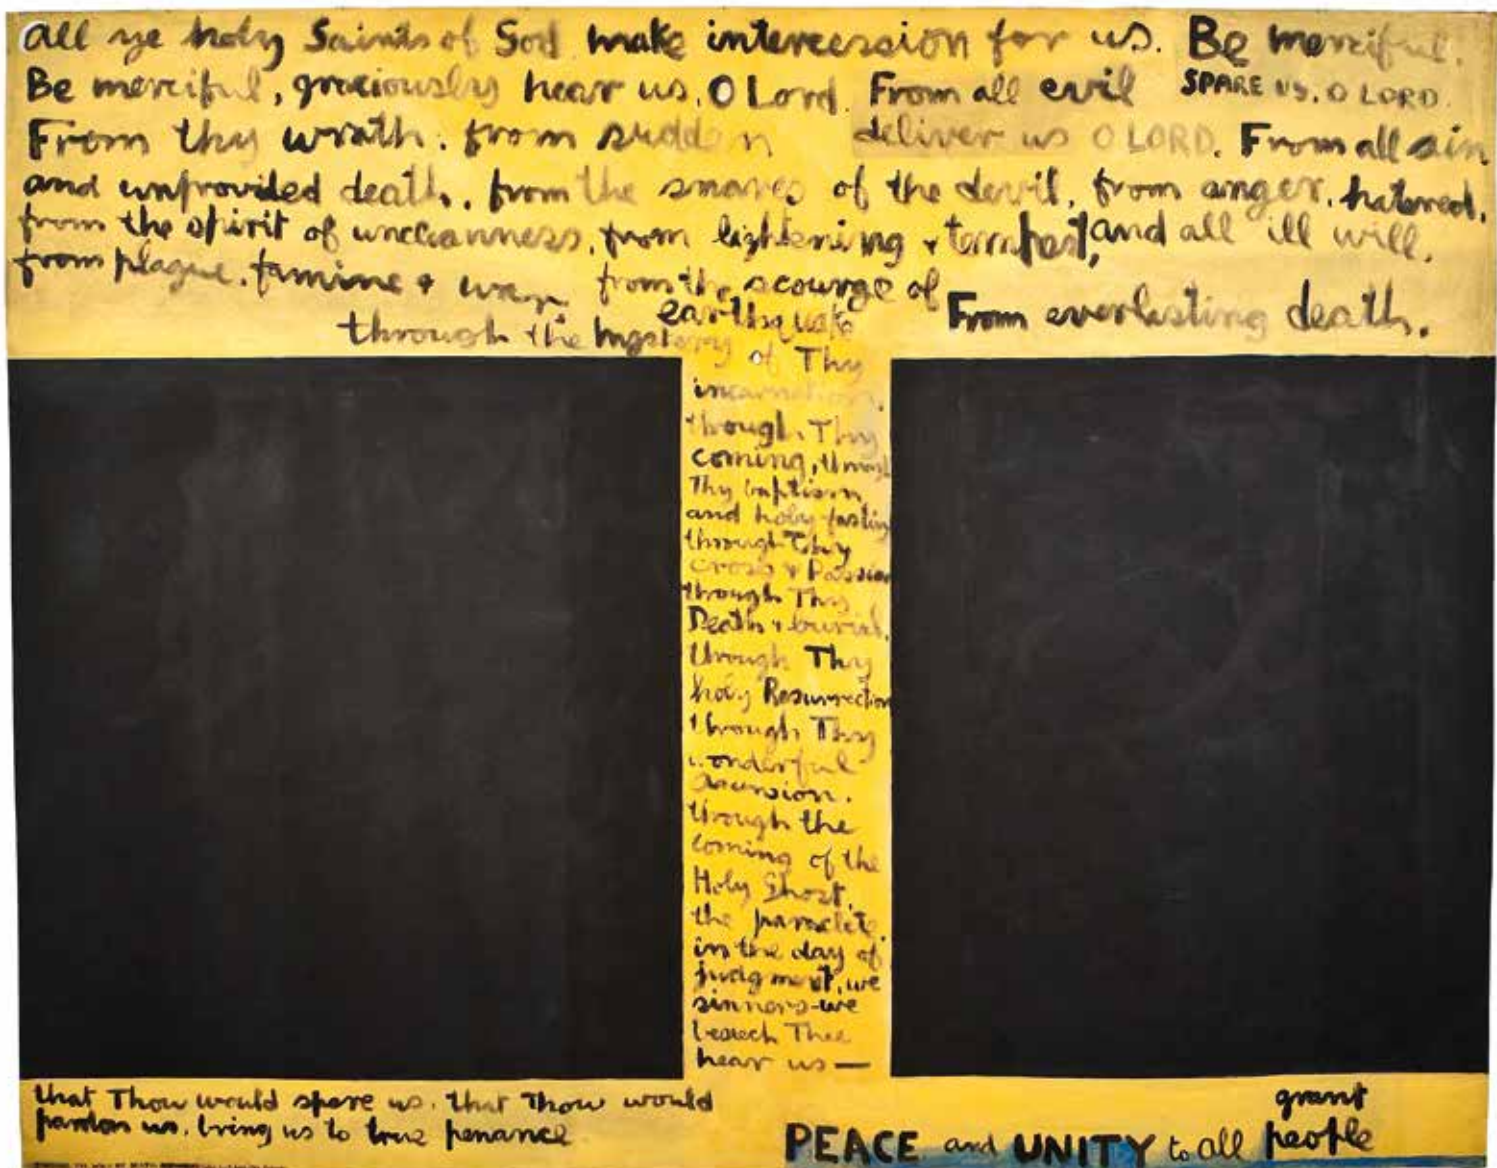 all ye holy Saints of God make intercession for us. Be merciful.
Be merciful, graciously hear us, O Lord. From all evil SPARE US, O LORD.
From thy wrath. from sudden deliver us O LORD. From all sin
and unprovided death. from the snares of the devil. from anger. hatered.
from the spirit of uncleanness. from lightening + tempest, and all ill will.
from plague. famine + war. from the scourge of
earthquake From everlasting death.
through the mystery
of Thy
incarnation.
through Thy
coming, through
Thy baptism
and holy fasting
through Thy
Cross + Passion
through Thy
Death + burial.
through Thy
holy Resurrection
through Thy
wonderful
Ascension.
through the
coming of the
Holy Ghost.
the paraclete.
in the day of
judgment, we
sinners-we
beseech Thee
hear us —
that Thou would spare us. that Thou would
pardon us. bring us to true penance
grant
PEACE and UNITY to all people